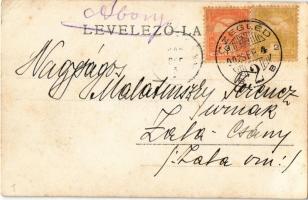 Abony
LEVELEZŐ-LA
CZEGLÉD
Nagyságos
Malatinszky Ferencz
Urnak
Zala-Csány
/:Zala vm:/